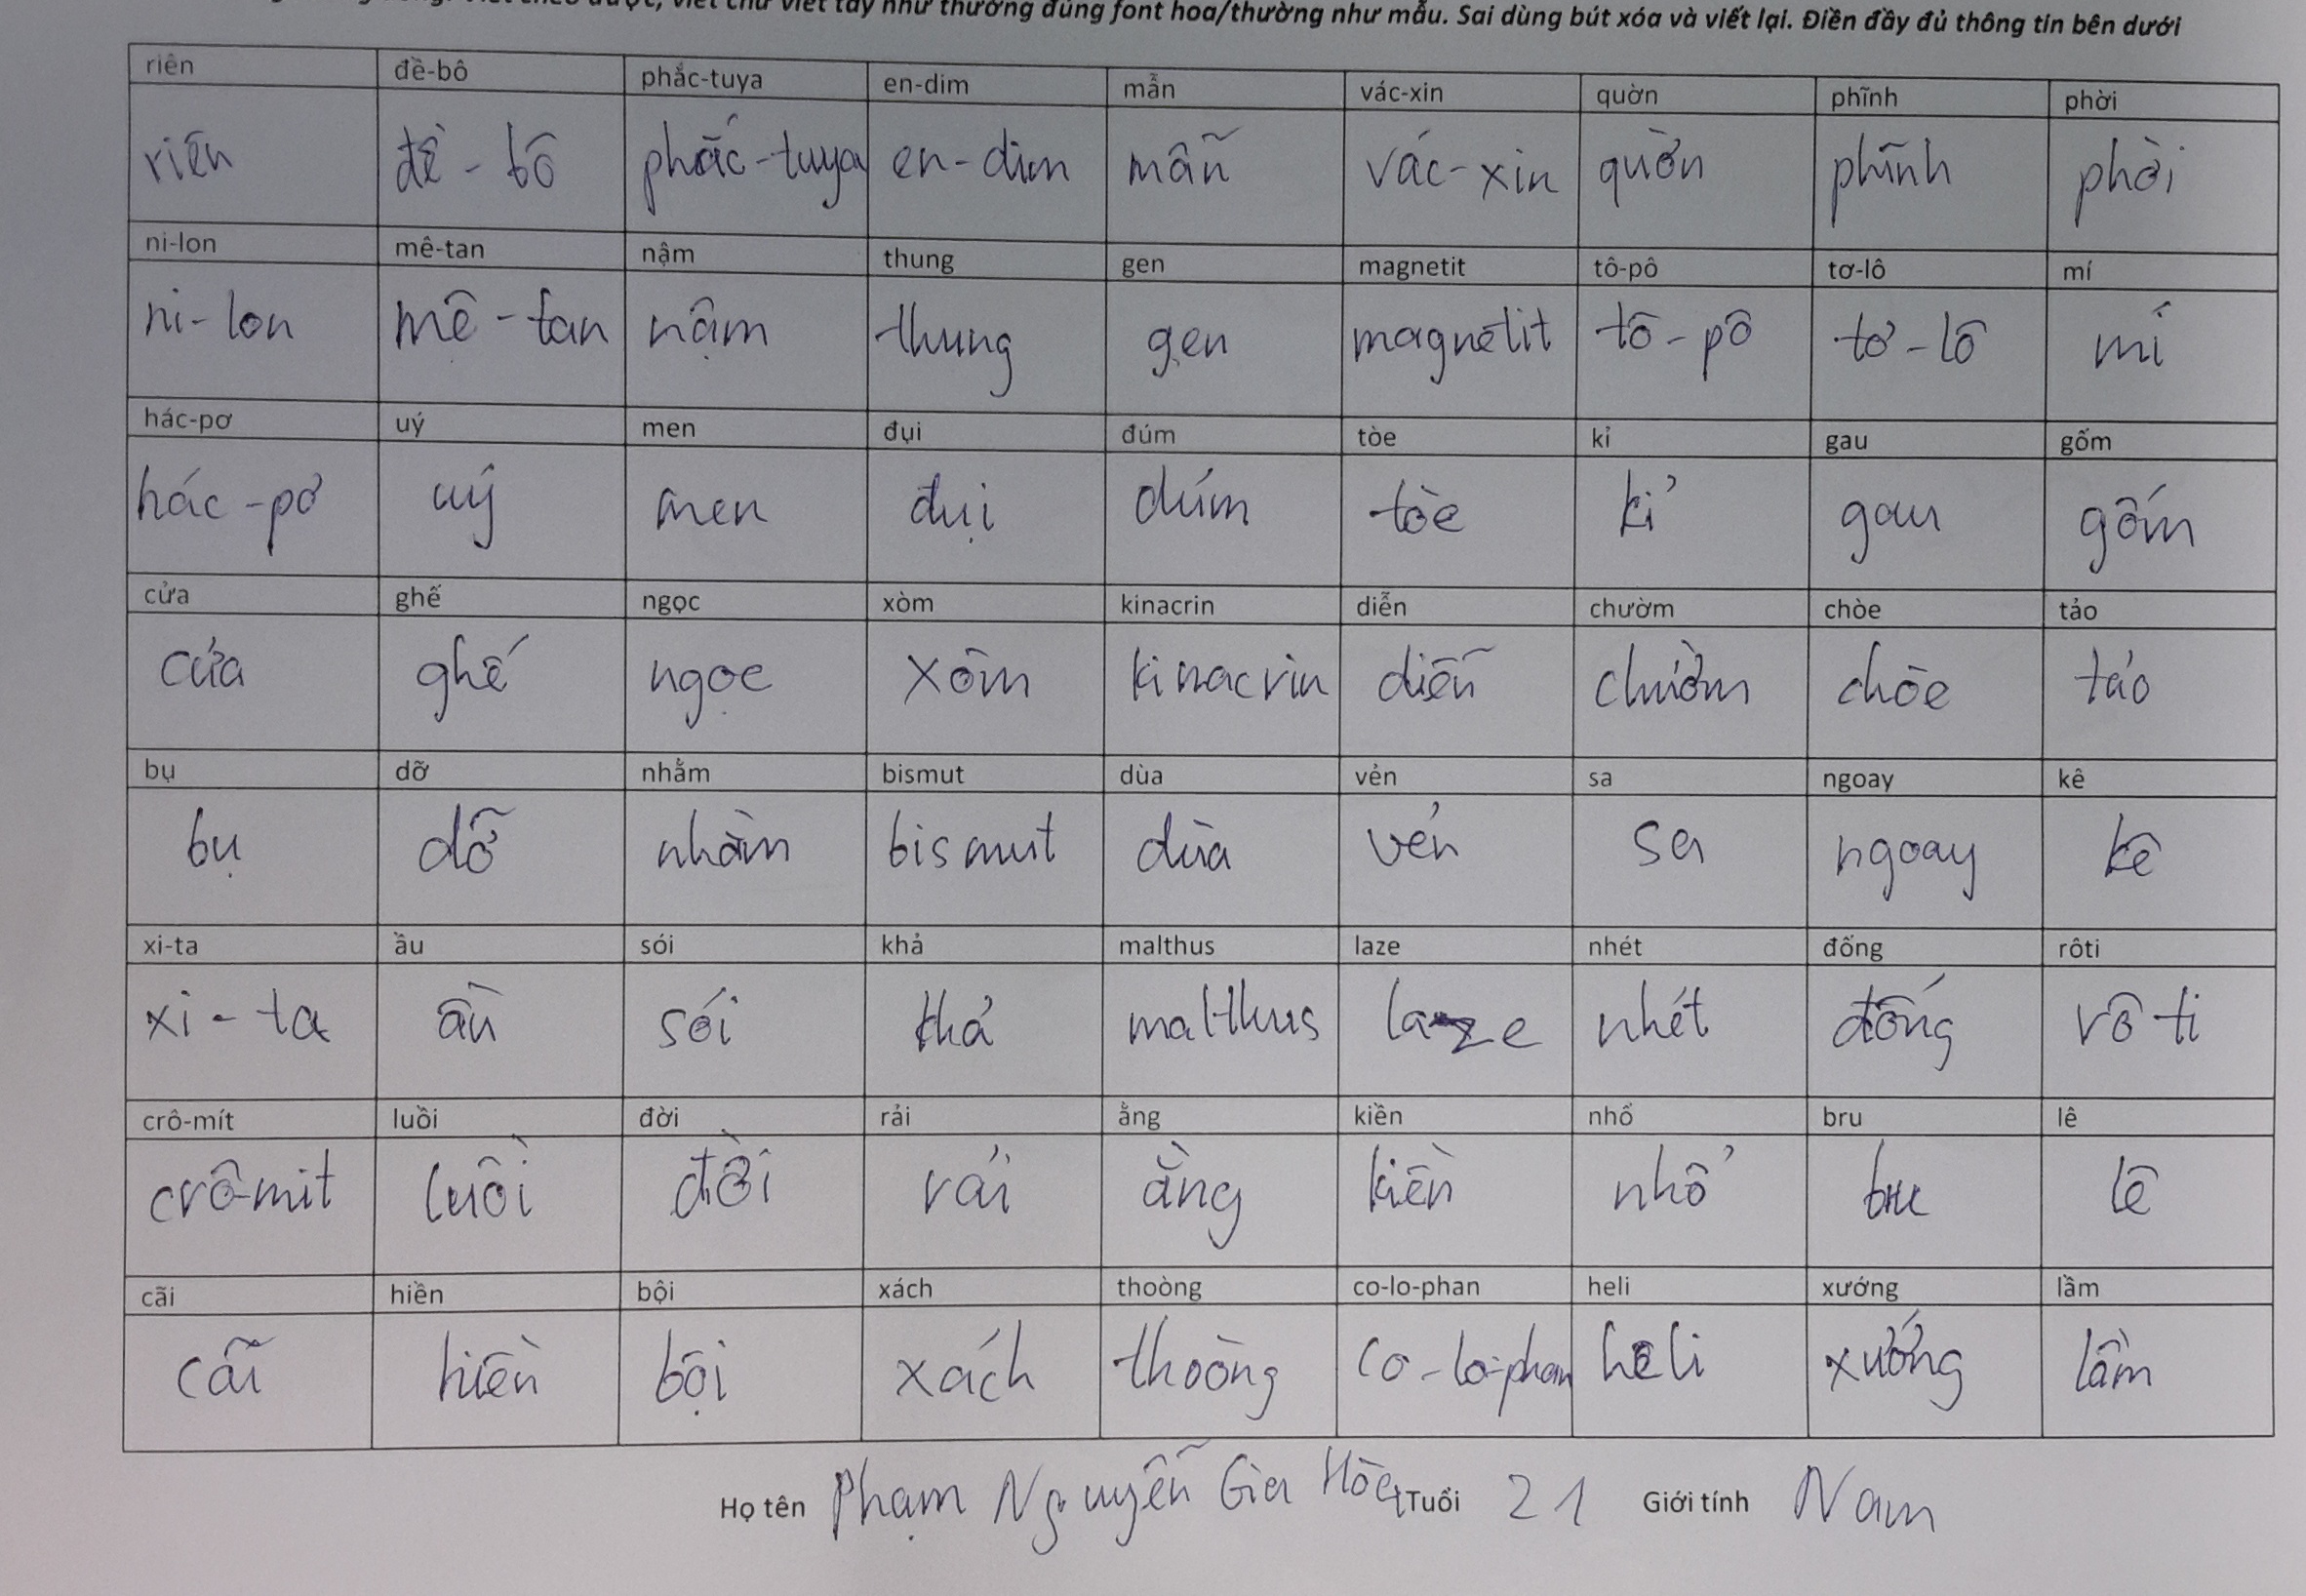 viết chữ viết tay như thường đúng font hoa/thường như mẫu. Sai dùng bút xóa và viết lại. Điền đầy đủ thông tin bên dưới
riên đề-bô phắc-tuya en-dim mẫn vác-xin quờn phĩnh phời
riên đề-bô phắc-tuya en-dim mẫn vác-xin quờn phĩnh phời
ni-lon mê-tan nậm thung gen magnetit tô-pô tơ-lô mí
ni-lon mê-tan nậm thung gen magnetit tô-pô tơ-lô mí
hác-pơ uý men đụi đúm tòe kỉ gau gốm
hác-pơ uý men đụi đúm tòe kỉ gau gốm
cửa ghế ngọc xòm kinacrin diễn chườm chòe tảo
cửa ghế ngọc xòm kinacrin diễn chườm chòe tảo
bụ dỡ nhằm bismut dùa vẻn sa ngoay kê
bụ dỡ nhằm bismut dùa vẻn sa ngoay kê
xi-ta ầu sói khả malthus laze nhét đống rôti
xi-ta ầu sói khả malthus laze nhét đống rôti
crô-mít luồi đời rải ằng kiền nhổ bru lê
crô-mit luồi đời rải ằng kiền nhổ bru lê
cãi hiền bội xách thoòng co-lo-phan heli xướng lầm
cãi hiền bội xách thoòng co-lo-phan heli xướng lầm
Họ tên Phạm Nguyễn Gia Hòa Tuổi 21 Giới tính Nam